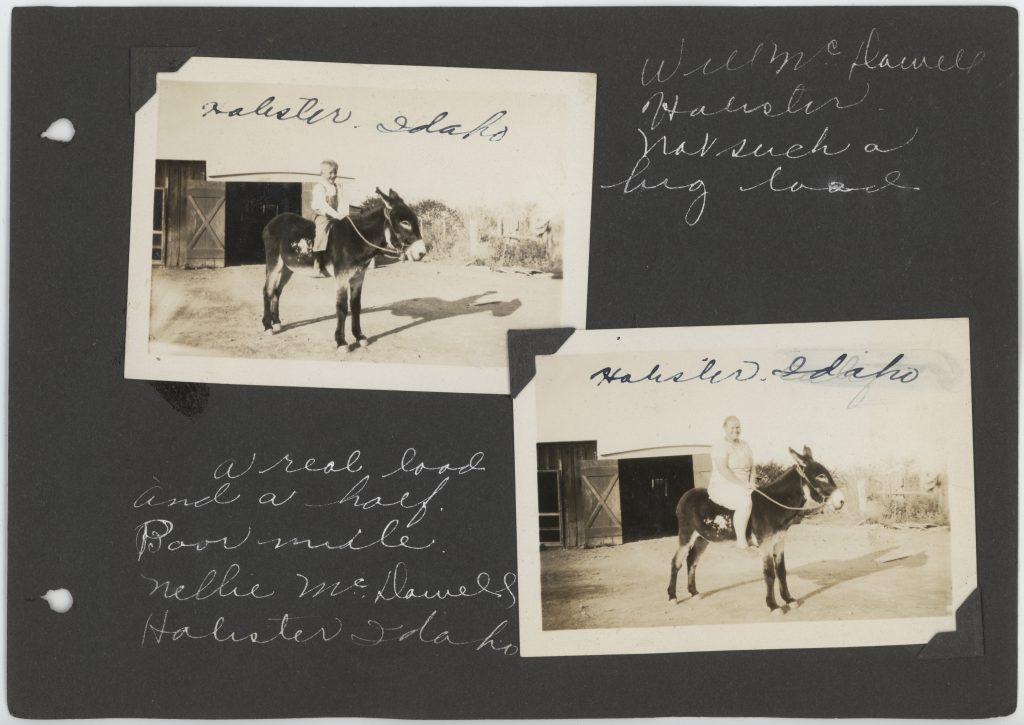 Holister. Idaho
Will McDowell
Holister.
Not such a
big load
Holister. Idaho
a real load
and a half.
Poor mule.
Nellie McDowell
Holister Idaho